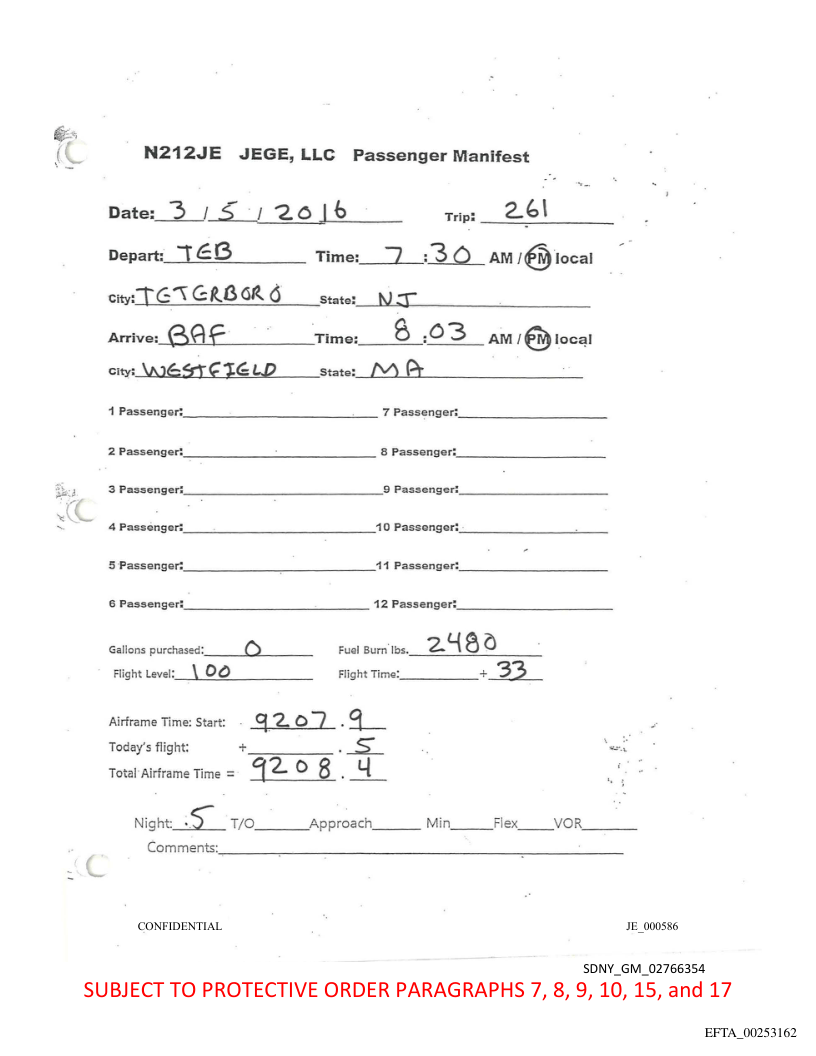 N212JE JEGE, LLC Passenger Manifest
Date: 3 / 5 / 2016 Trip: 261
Depart: TEB Time: 7 : 30 AM / PM local
City: TETERBORO State: NJ
Arrive: BAF Time: 8 : 03 AM / PM local
City: WESTFIELD State: MA
1 Passenger: 7 Passenger:
2 Passenger: 8 Passenger:
3 Passenger: 9 Passenger:
4 Passenger: 10 Passenger:
5 Passenger: 11 Passenger:
6 Passenger: 12 Passenger:
Gallons purchased: 0 Fuel Burn lbs. 2480
Flight Level: 100 Flight Time: + 33
Airframe Time: Start: 9207 . 9
Today's flight: + . 5
Total Airframe Time = 9208 . 4
Night: .5 T/O Approach Min Flex VOR
Comments:
CONFIDENTIAL JE_000586
SDNY_GM_02766354
SUBJECT TO PROTECTIVE ORDER PARAGRAPHS 7, 8, 9, 10, 15, and 17
EFTA_00253162